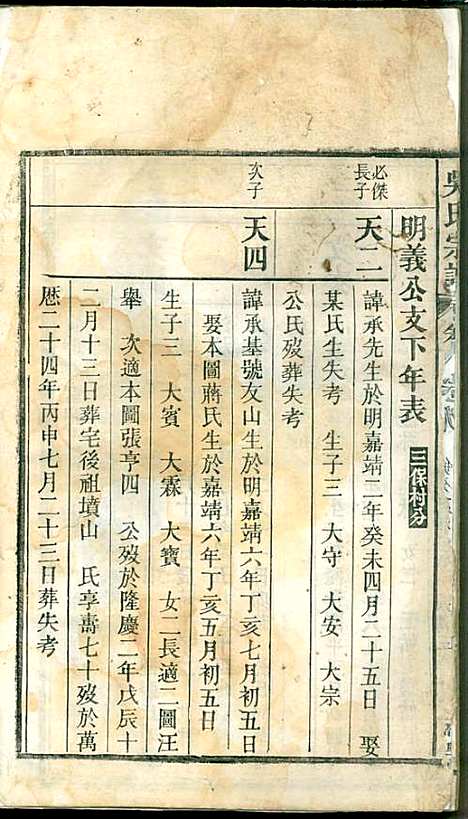 吳氏宗譜
明義公支下年表 三保村分
必傑長子
天二
諱承先生於明嘉靖二年癸未四月二十五日 娶
某氏生失考 生子三 大守 大安 大宗
公氏歿葬失考
次子
天四
諱承基號友山生於明嘉靖六年丁亥七月初五日
娶本圖蔣氏生於嘉靖六年丁亥五月初五日
生子三 大賓 大霖 大寶 女二長適二圖汪
舉 次適本圖張亨四 公歿於隆慶二年戊辰十
二月十三日葬宅後祖墳山 氏享壽七十歿於萬
曆二十四年丙申七月二十三日葬失考